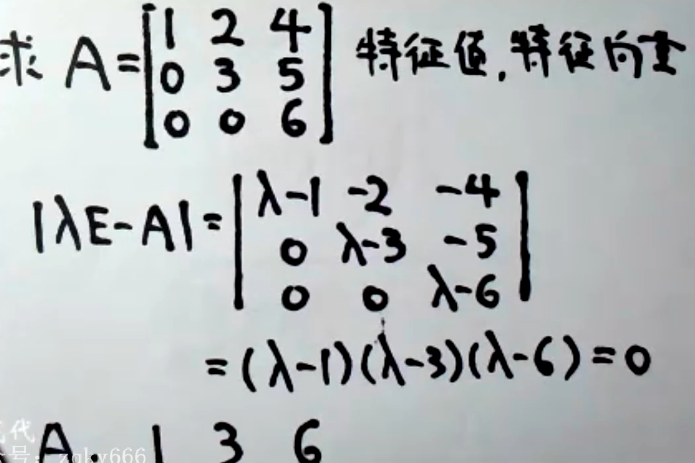 求 A = [1 2 4
0 3 5
0 0 6] 特征值,特征向量
|λE-A| = |λ-1 -2 -4
0 λ-3 -5
0 0 λ-6|
=(λ-1)(λ-3)(λ-6)=0
A 1 3 6
代
号: zgky666